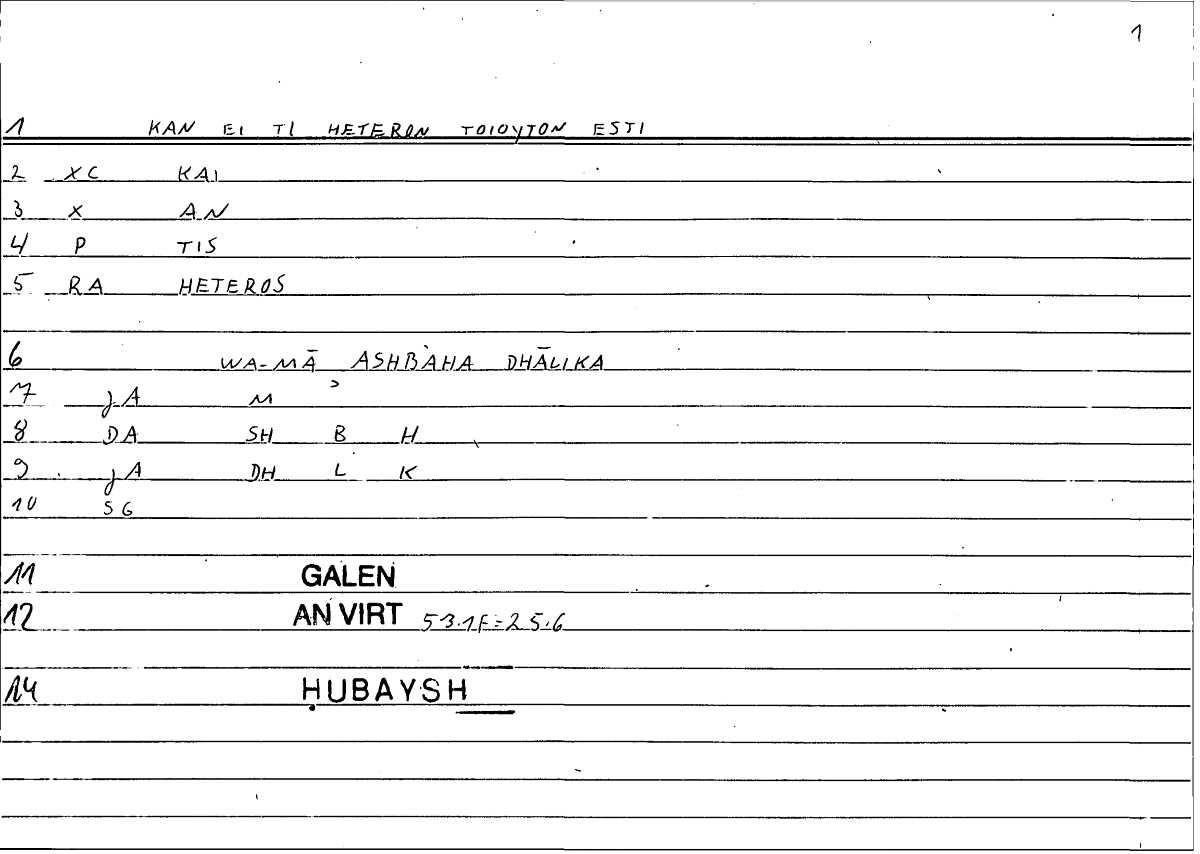 1
1 KAN EI TI HETERON TOIOYTON ESTI
2 XC KAI
3 X AN
4 P TIS
5 RA HETEROS
6 WA-MĀ ASHBAHA DHĀLIKA
7 JA M
8 DA SH B H
9 JA DH L K
10 SG
11 GALEN
12 AN VIRT 53.1F=25.6
14 ḤUBAYSH